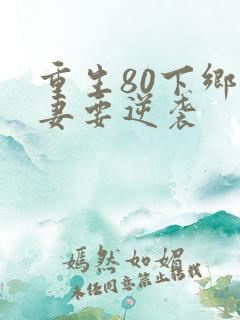 重生80下乡
妻要逆袭
嫣然如媚
未经同意禁止转载